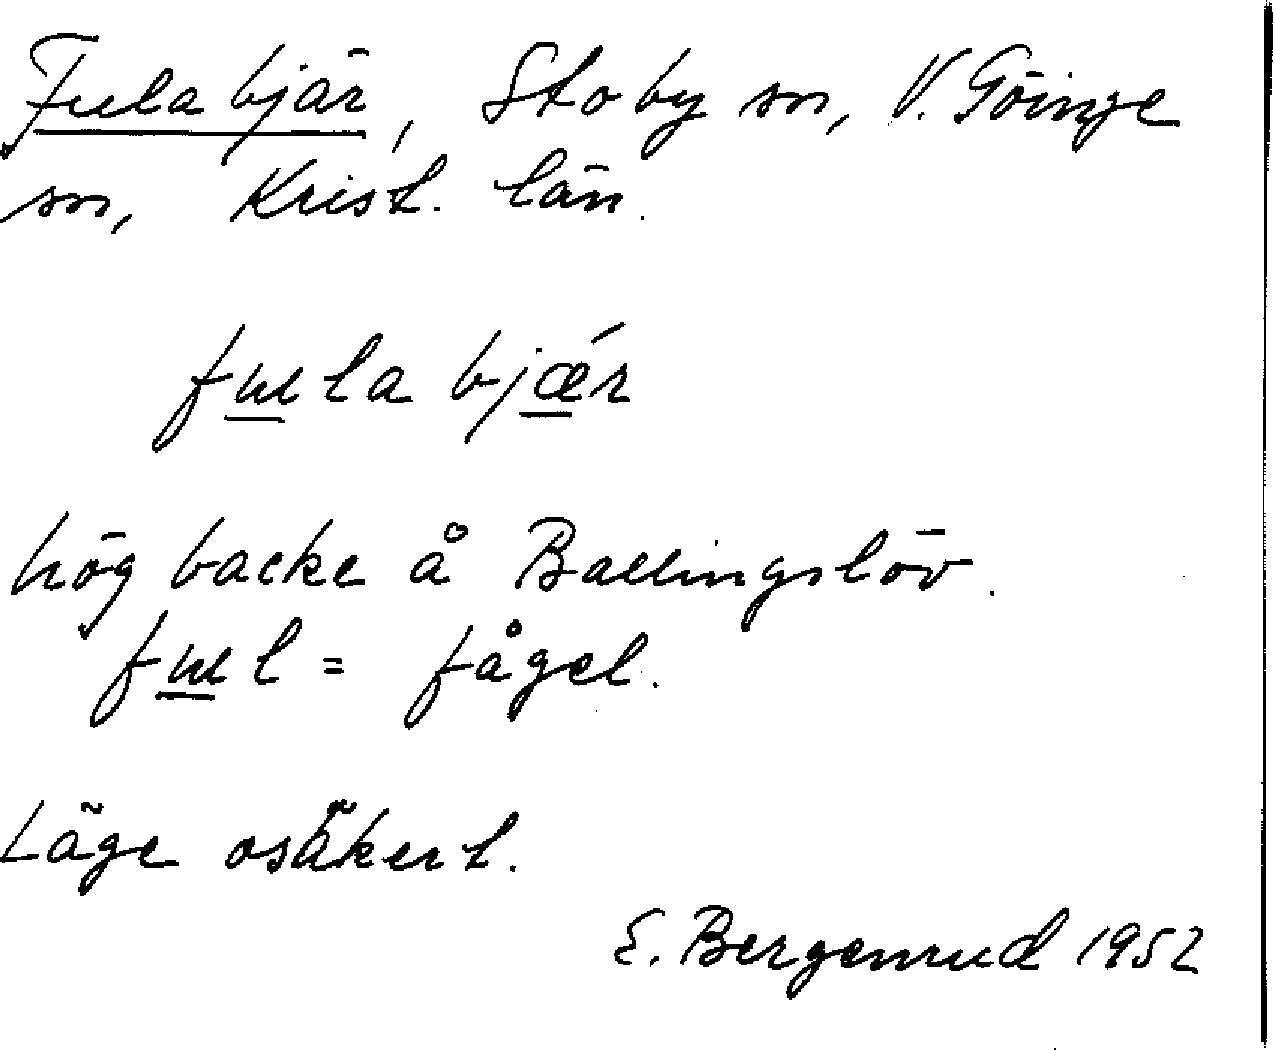 Fula bjär, Stoby sn, V. Göinge
sn, Krist. län.
fula bjǽr
hög backe å Ballingslöv.
ful = fågel.
Läge osäkert.
E. Bergenrud 1952